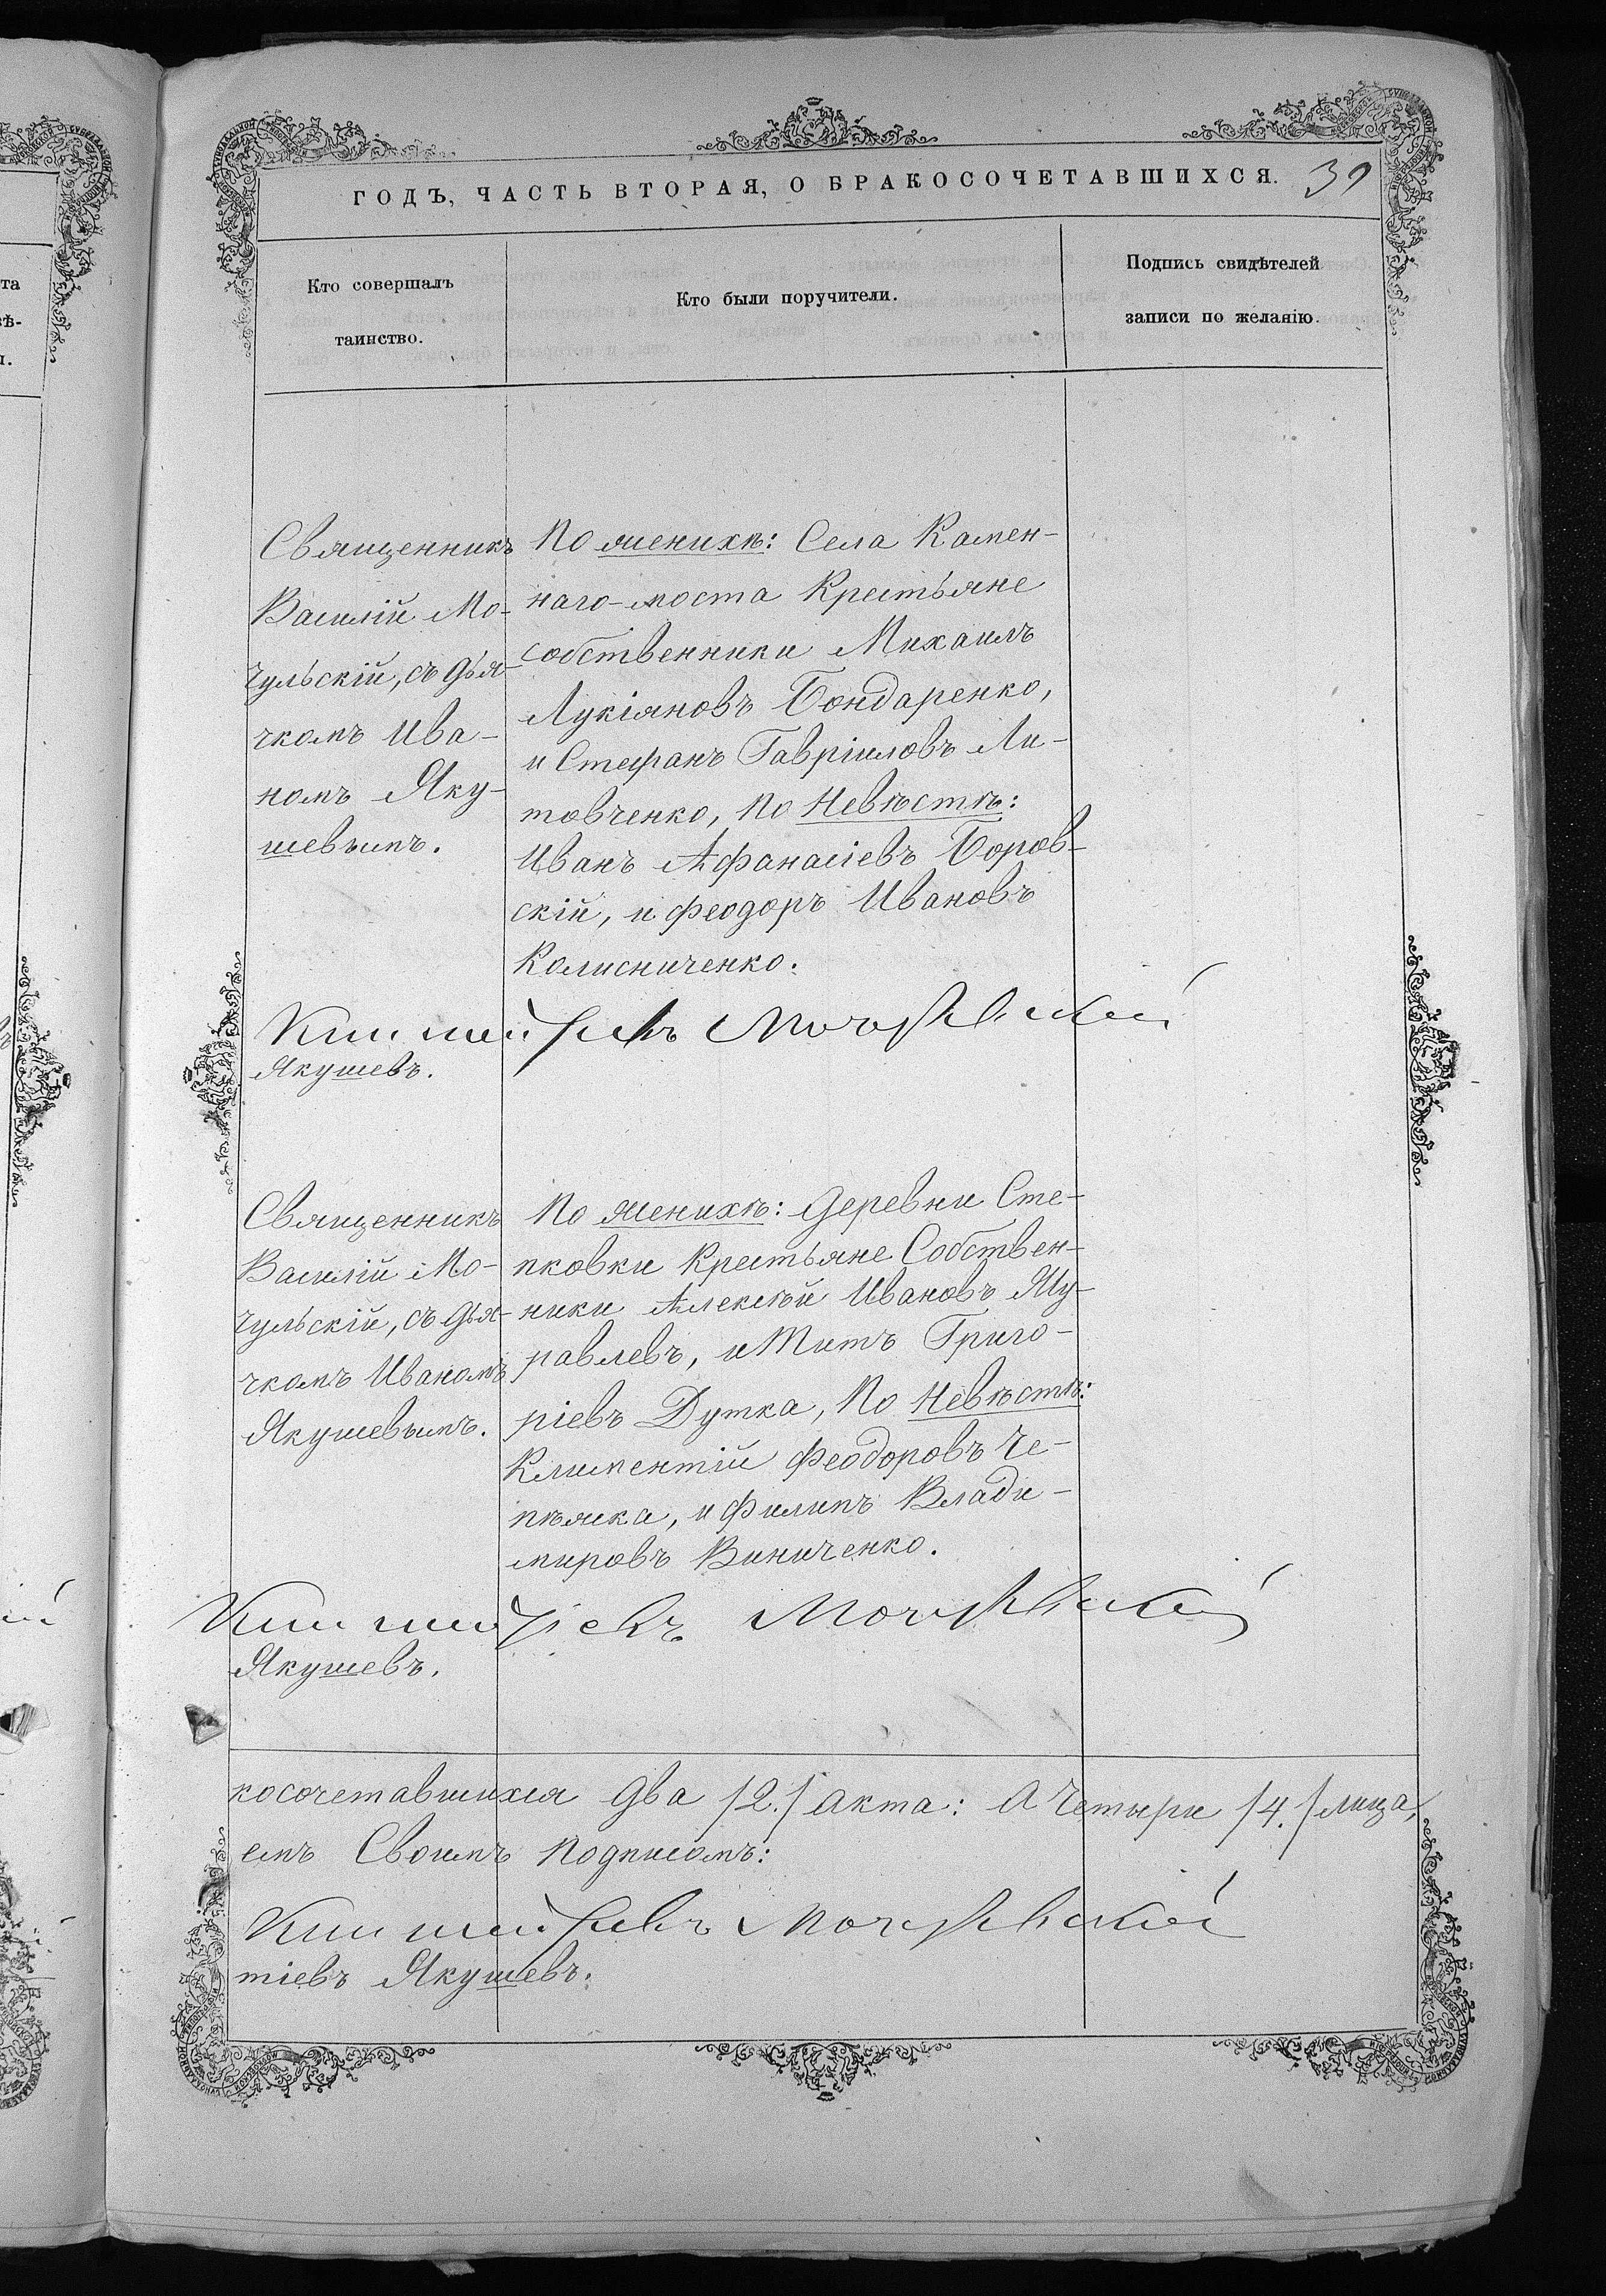 ГОДЪ, ЧАСТЬ ВТОРАЯ, О БРАКОСОЧЕТАВШИХСЯ. 39
Кто совершалъ
таинство.
Кто были поручители.
Подпись свидѣтелей
записи по желанію.
Священникъ
Василій Мо-
чульскій, съ дья-
чкомъ Ива-
номъ Яку-
шевымъ.
По женихѣ: Села Камен-
наго-моста Крестьяне
собственники Михаилъ
Лукіяновъ Бондаренко,
и Стефанъ Гавріиловъ Ли-
товченко, По Невѣстѣ:
Иванъ Афанасіевъ Боров-
скій, и Феодоръ Ивановъ
Колисниченко.
Мочульскій
Якушевъ.
Священникъ
Василій Мо-
чульскій, съ дья-
чкомъ Иваномъ
Якушевымъ.
По женихѣ: Деревни Сте-
пковки Крестьяне Собствен-
ники Алексѣй Ивановъ Жу-
равлевъ, и Титъ Григо-
ріевъ Дутка, По Невѣстѣ:
Климентій Феодоровъ Че-
пѣжка, и Филипъ Влади-
міровъ Виниченко.
Мочульскій
Якушевъ.
косочетавшихся два /2./ Акта: А Четыри /4./ лица,
емъ Своимъ Подписомъ:
Мочульскій
тіевъ Якушевъ.
та
вѣ-